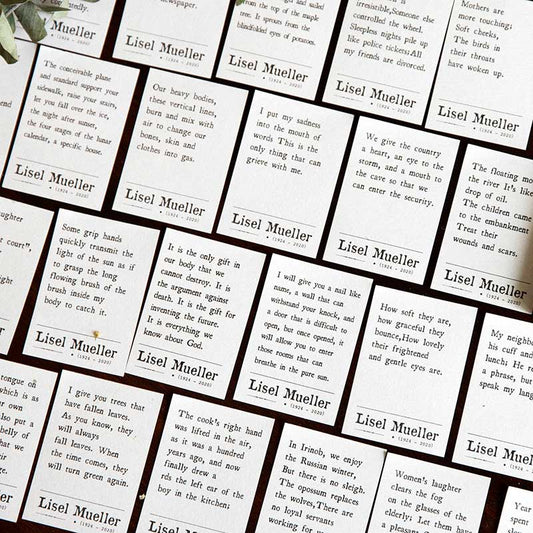 contentedly.
Lisel Mueller
(1924 - 2020)
newspaper.
Lisel Mueller
(1924 - 2020)
and sailed
from the top of the maple
tree. It sprouts from the
blindfolded eyes of potatoes.
Lisel Mueller
(1924 - 2020)
irresistible,Someone else
controlled the wheel.
Sleepless nights pile up
like police tickets,and
my friends are divorced.
Lisel Mueller
(1924 - 2020)
Mothers are
more touching;
Soft cheeks,
The birds in
their throats
have woken up.
Lisel Mueller
(1924 - 2020)
The conceivable plane
and standard support your
sidewalk, raise your stairs,
let you fall over the ice,
the night after sunset,
the four stages of the lunar
calendar, a specific house.
Lisel Mueller
(1924 - 2020)
Our heavy bodies,
these vertical lines,
burn and mix with
air to change our
bones, skin and
clothes into gas.
Lisel Mueller
(1924 - 2020)
I put my sadness
into the mouth of
words This is the
only thing that can
grieve with me.
Lisel Mueller
(1924 - 2020)
We give the country
a heart, an eye to the
storm, and a mouth to
the cave so that we
can enter the security.
Lisel Mueller
(1924 - 2020)
The floating
the river It's like
drop of oil.
The children came
to the embankment
Treat their
wounds and scars.
Lisel Mueller
(1924 - 2020)
laughter
court",
Some grip hands
quickly transmit the
light of the sun as if
to grasp the long
flowing brush of the
brush inside my
body to catch it.
Lisel Mueller
(1924 - 2020)
It is the only gift in
our body that we
cannot destroy. It is
the argument against
death. It is the gift for
inventing the future.
It is everything we
know about God.
Lisel Mueller
(1924 - 2020)
I will give you a nail like
name, a wall that can
withstand your knock, and
a door that is difficult to
open, but once opened, it
will allow you to enter
those rooms that can
breathe in the pure sun.
Lisel Mueller
(1924 - 2020)
How soft they are,
how graceful they
bounce,How lovely
their frightened
and gentle eyes are.
Lisel Mueller
(1924 - 2020)
My neighbo
his cuff and
lunch; He re
a phrase, but
speak my lang
Lisel Mueller
(1924 - 2020)
tongue on
which is as
own
also put a
belly of
that we
I give you trees that
have fallen leaves.
As you know, they
will always
fall leaves. When
the time comes, they
will turn green again.
Lisel Mueller
(1924 - 2020)
The cook's right hand
was lifted in the air,
as it was a hundred
years ago, and now
finally drew a
rds the left ear of the
boy in the kitchen;
Lisel Mueller
(1924 - 2020)
In Irinob, we enjoy
the Russian winter,
But there is no sleigh.
The opossum replaces
the wolves,There are
no loyal servants
working for
Women's laughter
clears the fog
on the glasses of the
elderly; Let them have
a pleasant
Year
spent
slow